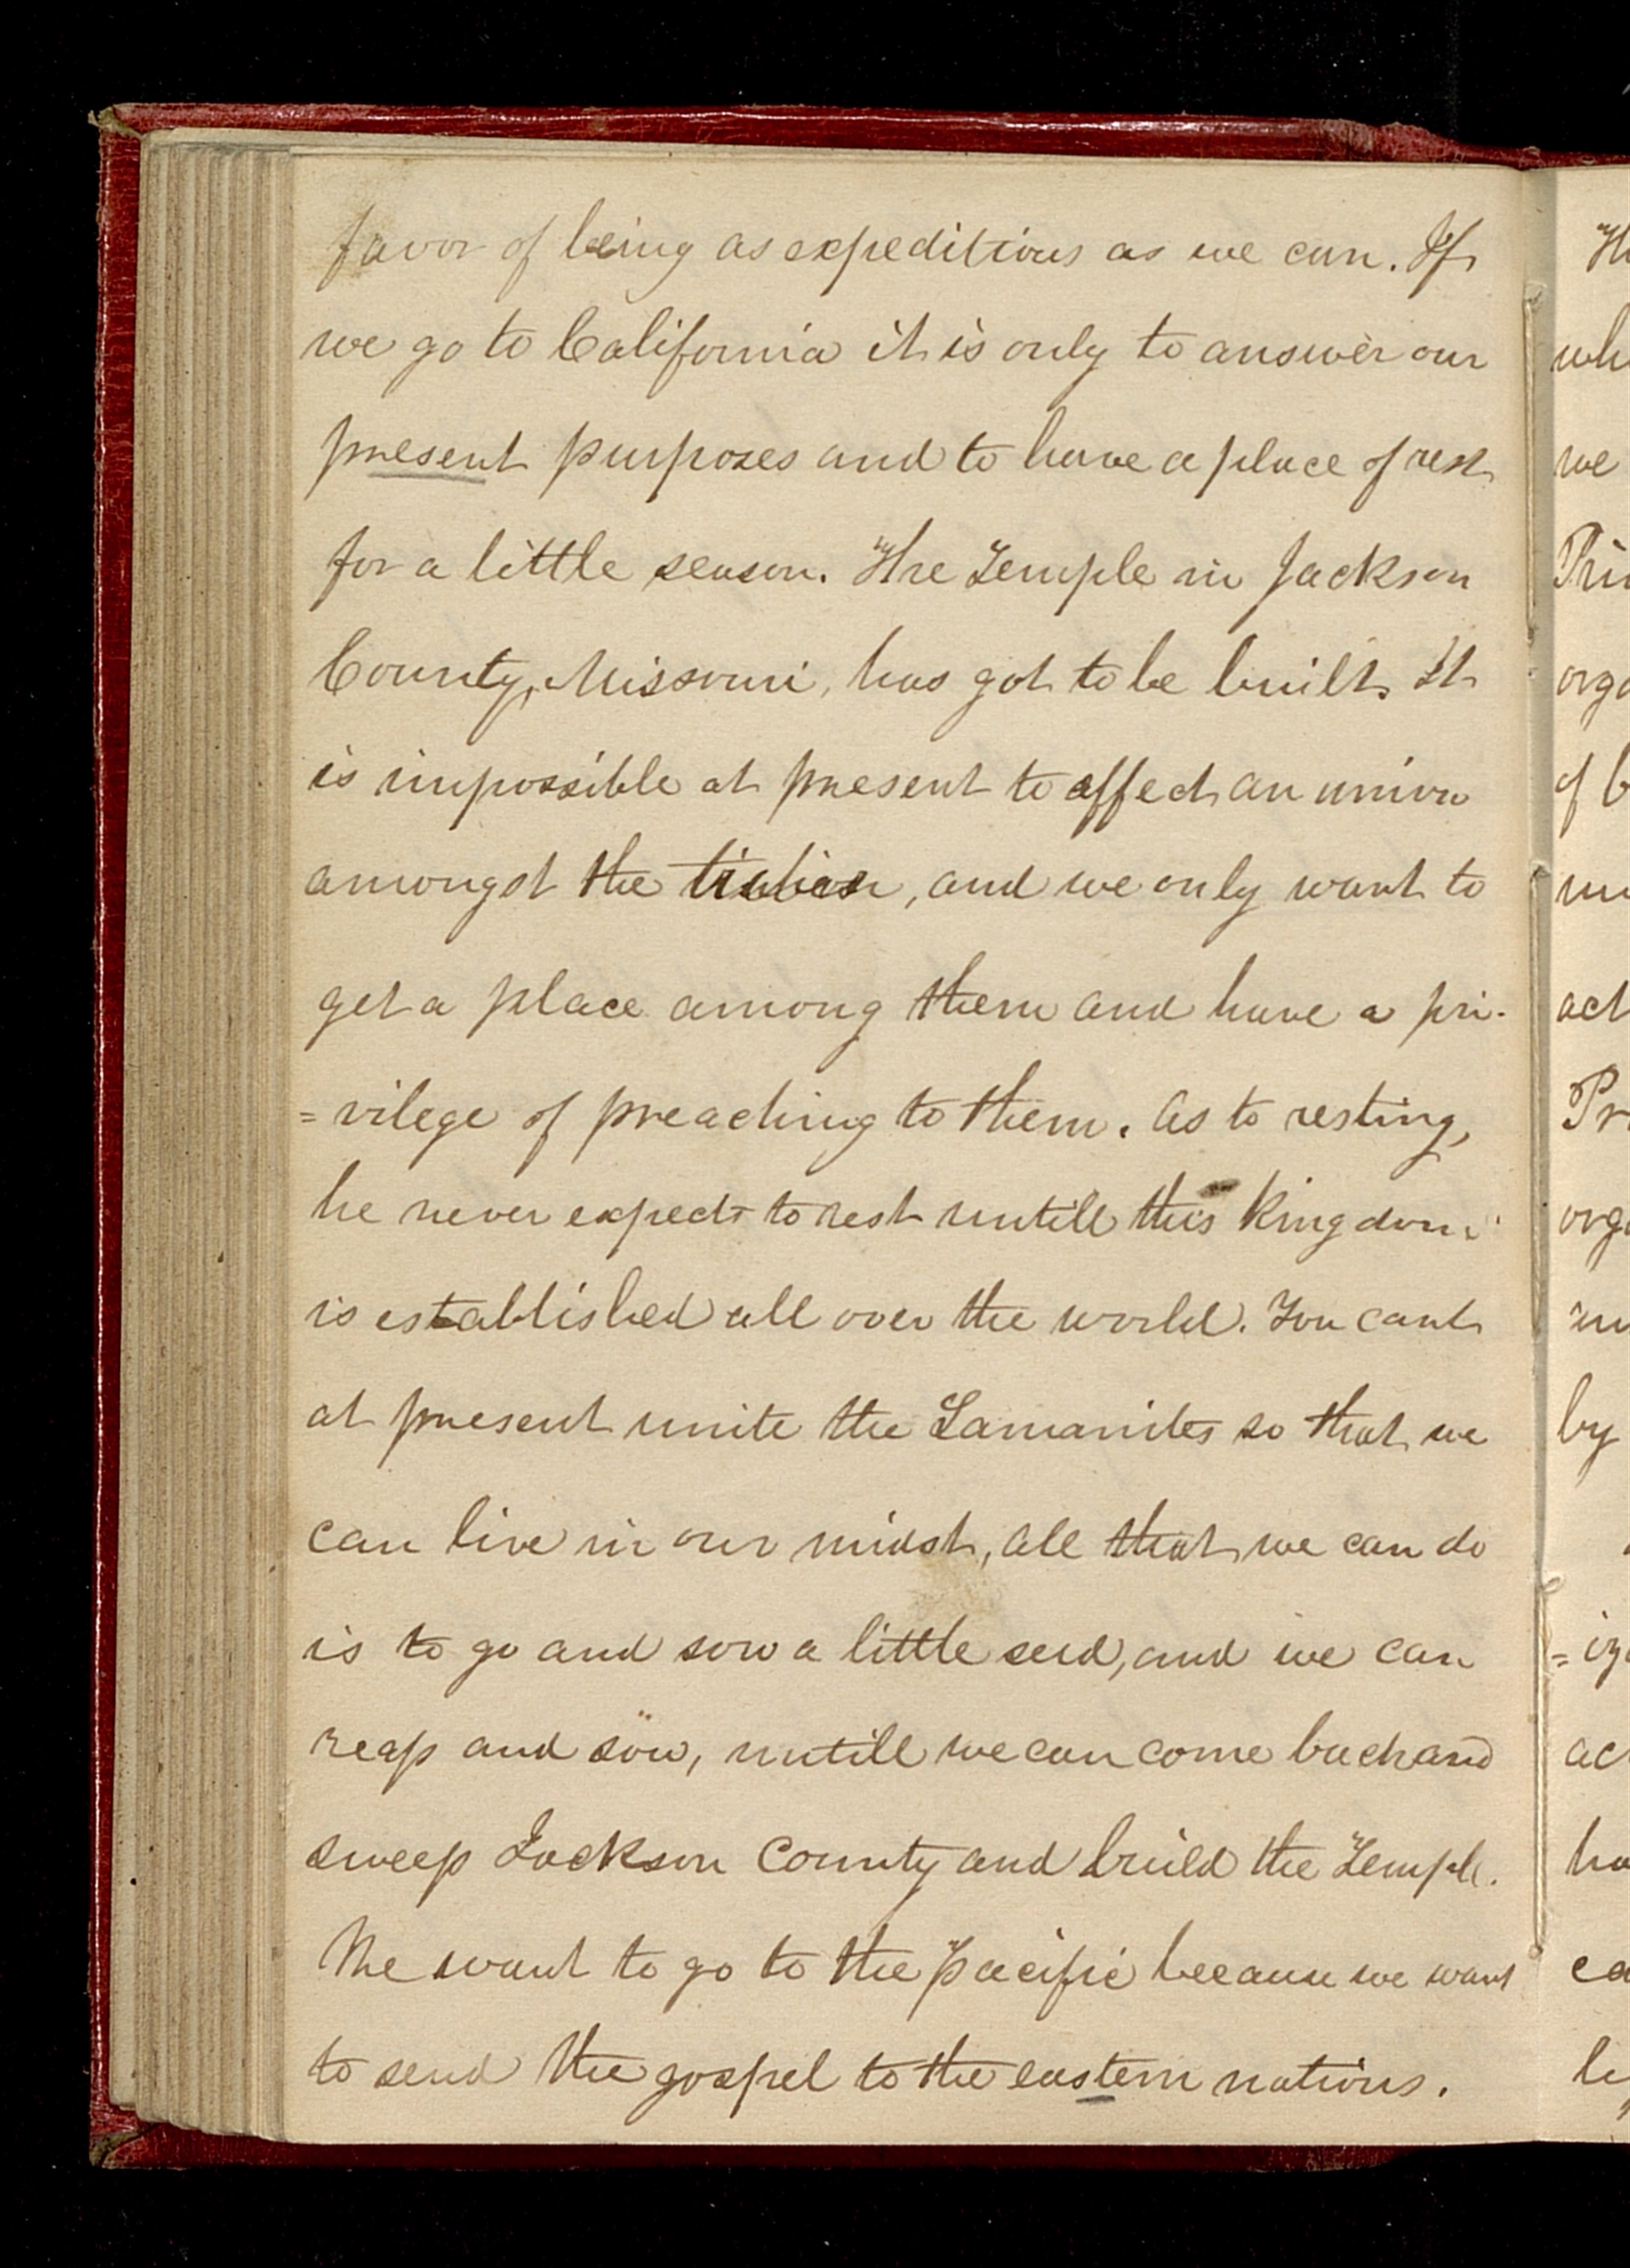 favor of being as expeditious as we can. If
we go to California it is only to answer our
present purposes and to have a place of rest
for a little season. The Temple in Jackson
County, Missouri, has got to be built. It
is impossible at present to affect an union
amongst the tribes, and we only want to
get a place among them and have a pri-
=vilege of preaching to them. As to resting,
he never expects to rest untill this Kingdom
is established all over the world. You cant
at present unite the Lamanites so that we
can live in our midst, all that we can do
is to go and sow a little seed, and we can
reap and sow, untill we can come back and
sweep Jackson County and build the Temple.
We want to go to the Pacific because we want
to send the gospel to the eastern nations.
Th
wh
we
Pri
orga
of b
act
Pr
orga
by
=iza
ac
ha
ca